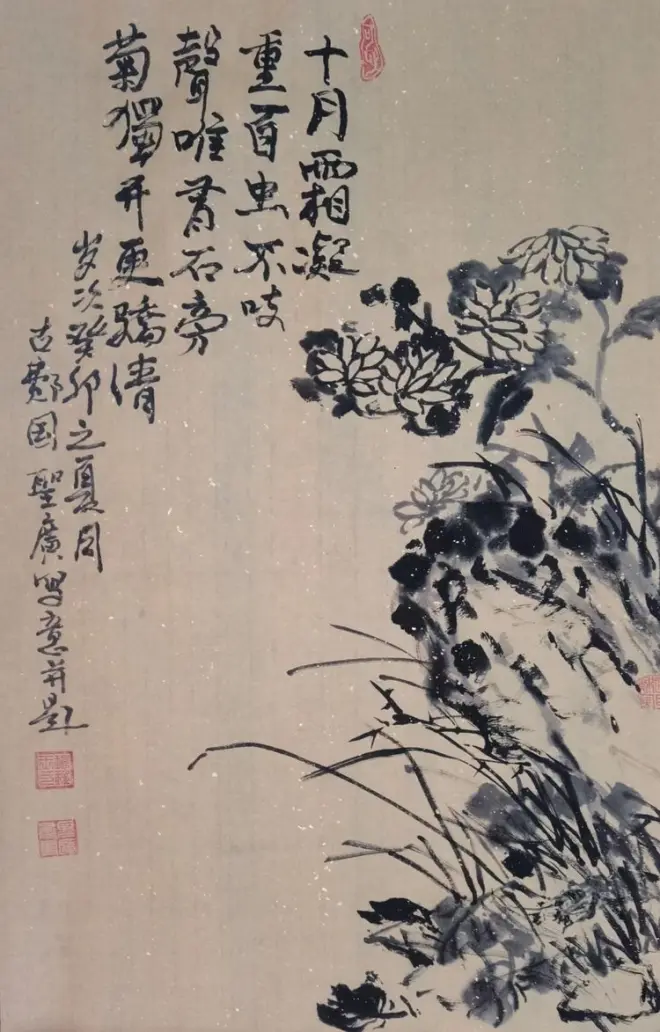 十月霜凝
重百虫不吱
聲唯石旁
菊獨开更骄
岁次癸卯之夏周
古鄭国聖廣写意并題